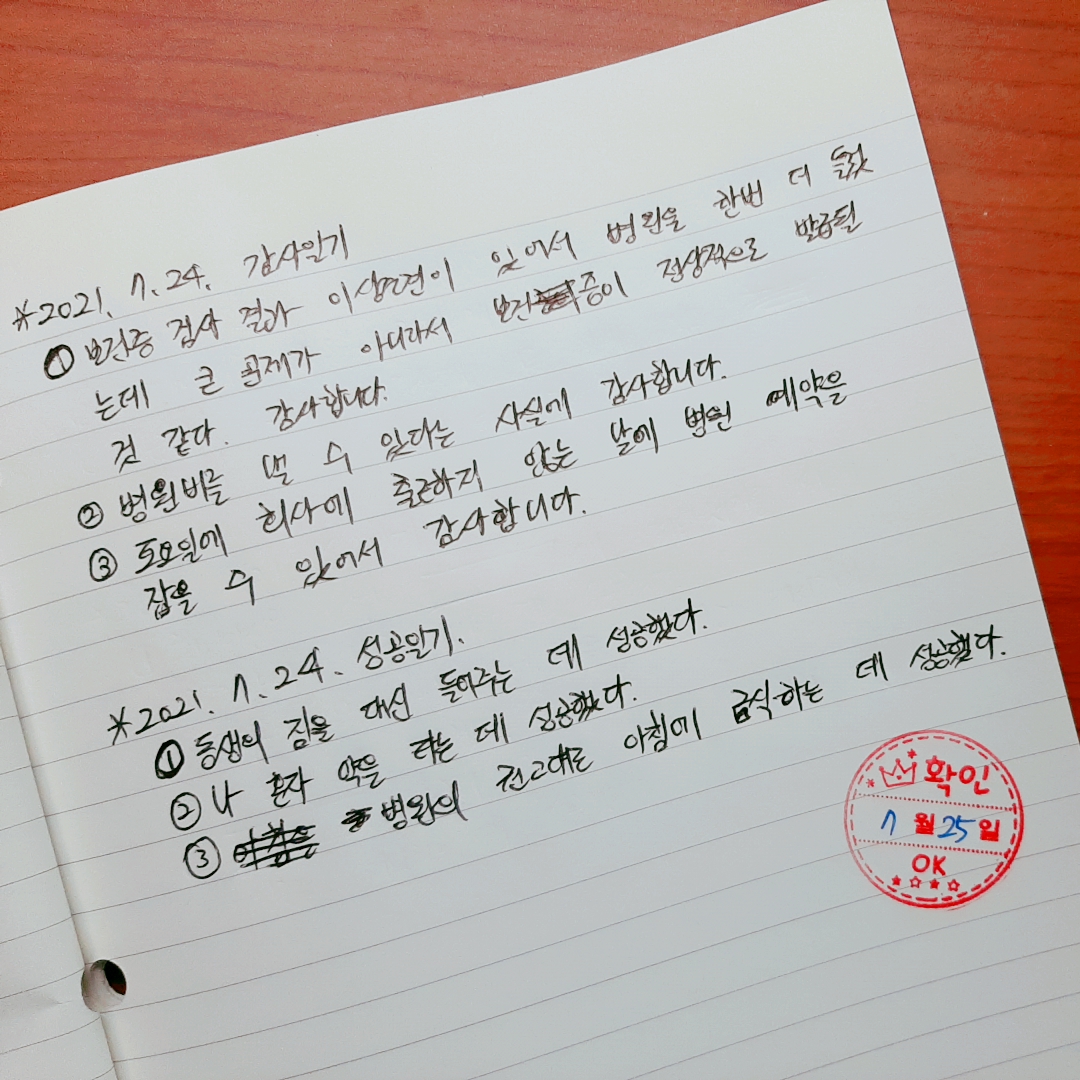 *2021. 7. 24. 감사일기
① 보건증 검사 결과 이상소견이 있어서 병원을 한번 더 들렀
는데 큰 문제가 아니라서 보건증이 정상적으로 발급될
것 같다. 감사합니다.
② 병원비를 낼 수 있다는 사실에 감사합니다.
③ 토요일에 회사에 출근하지 않는 날에 병원 예약을
잡을 수 있어서 감사합니다.
*2021. 7. 24. 성공일기.
① 동생의 짐을 대신 들어주는 데 성공했다.
② 나 혼자 약을 타는 데 성공했다.
③ 병원의 권고대로 아침에 금식하는 데 성공했다.
확인
7월 25일
OK